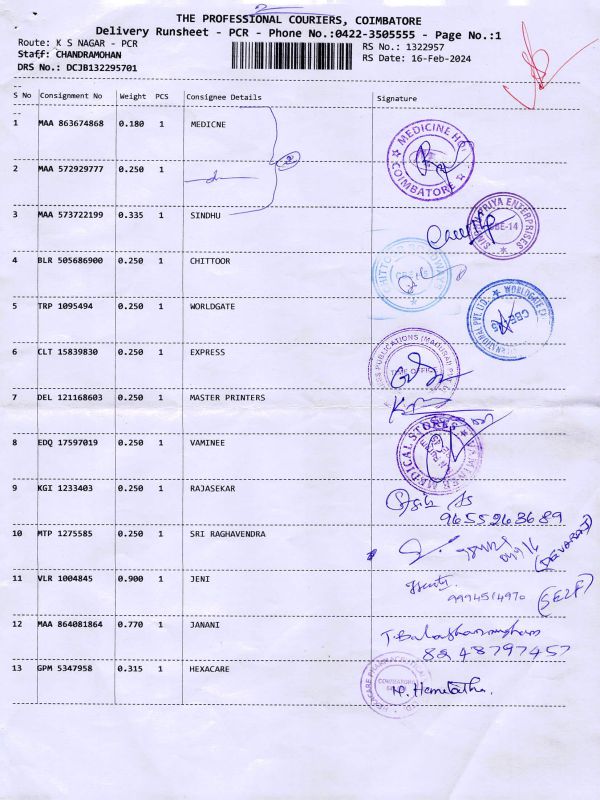 2
THE PROFESSIONAL COURIERS, COIMBATORE
Delivery Runsheet - PCR - Phone No.:0422-3505555 - Page No.:1
Route: K S NAGAR - PCR
RS No.: 1322957
Staff: CHANDRAMOHAN
RS Date: 16-Feb-2024
DRS No.: DCJB132295701
S No Consignment No Weight PCS Consignee Details Signature
1 MAA 863674868 0.180 1 MEDICNE
MEDICINE
COIMBATORE
2 MAA 572929777 0.250 1
3 MAA 573722199 0.335 1 SINDHU
PRIYA ENTERPRISES
CBE-14
4 BLR 505686900 0.250 1 CHITTOOR
5 TRP 1095494 0.250 1 WORLDGATE
WORLDGATE
6 CLT 15839830 0.250 1 EXPRESS
PUBLICATIONS (MADURAI)
7 DEL 121168603 1 0.250 MASTER PRINTERS
8 EDQ 17597019 0.250 1 VAMINEE
VAMINEE MEDICAL STORES
9 KGI 1233403 0.250 1 RAJASEKAR
9655263689
10 MTP 1275585 0.250 1 SRI RAGHAVENDRA
(DEVARAJ)
11 VLR 1004845 0.900 1 JENI
9994514970 (SELF)
12 MAA 864081864 0.770 1 JANANI
8248797457
13 GPM 5347958 0.315 1 HEXACARE
HEXACARE
COIMBATORE